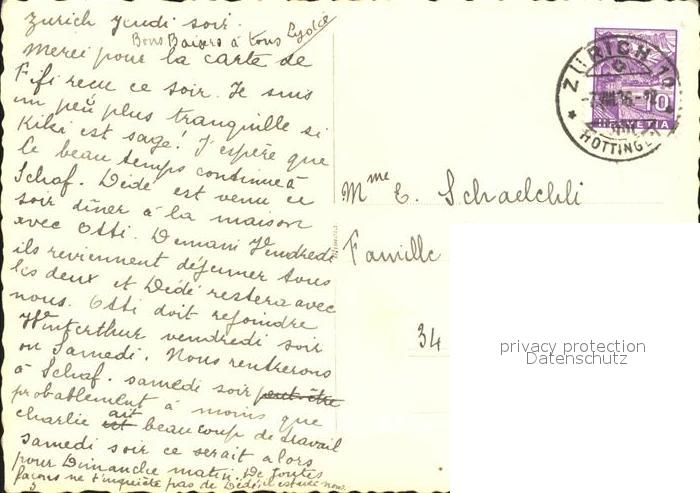 Zurich Jeudi soir.
Bons Baisers à tous
Merci pour la carte de
Fifi recu ce soir. Je suis
un peu plus tranquille si
Kiki est sage! J'espère que
le beau temps continue à
Schaf. Dédé est venu ce
soir dîner à la maison
avec Otti. Demain Vendredi
ils reviennent déjeuner tous
les deux et Dédé restera avec
nous. Otti doit rejoindre
Winterthur vendredi soir
ou Samedi. Nous rentrerons
à Schaf. samedi soir peut-être
probablement à moins que
Charlie est ait beaucoup de travail
samedi soir ce serait alors
pour Dimanche matin. De toutes
façons ne t'inquiète pas de Dédé, il est avec nous.
ZÜRICH 10
HOTTINGEN
10
HELVETIA
Mme E. Schaelchli
Famille
34
privacy protection
Datenschutz